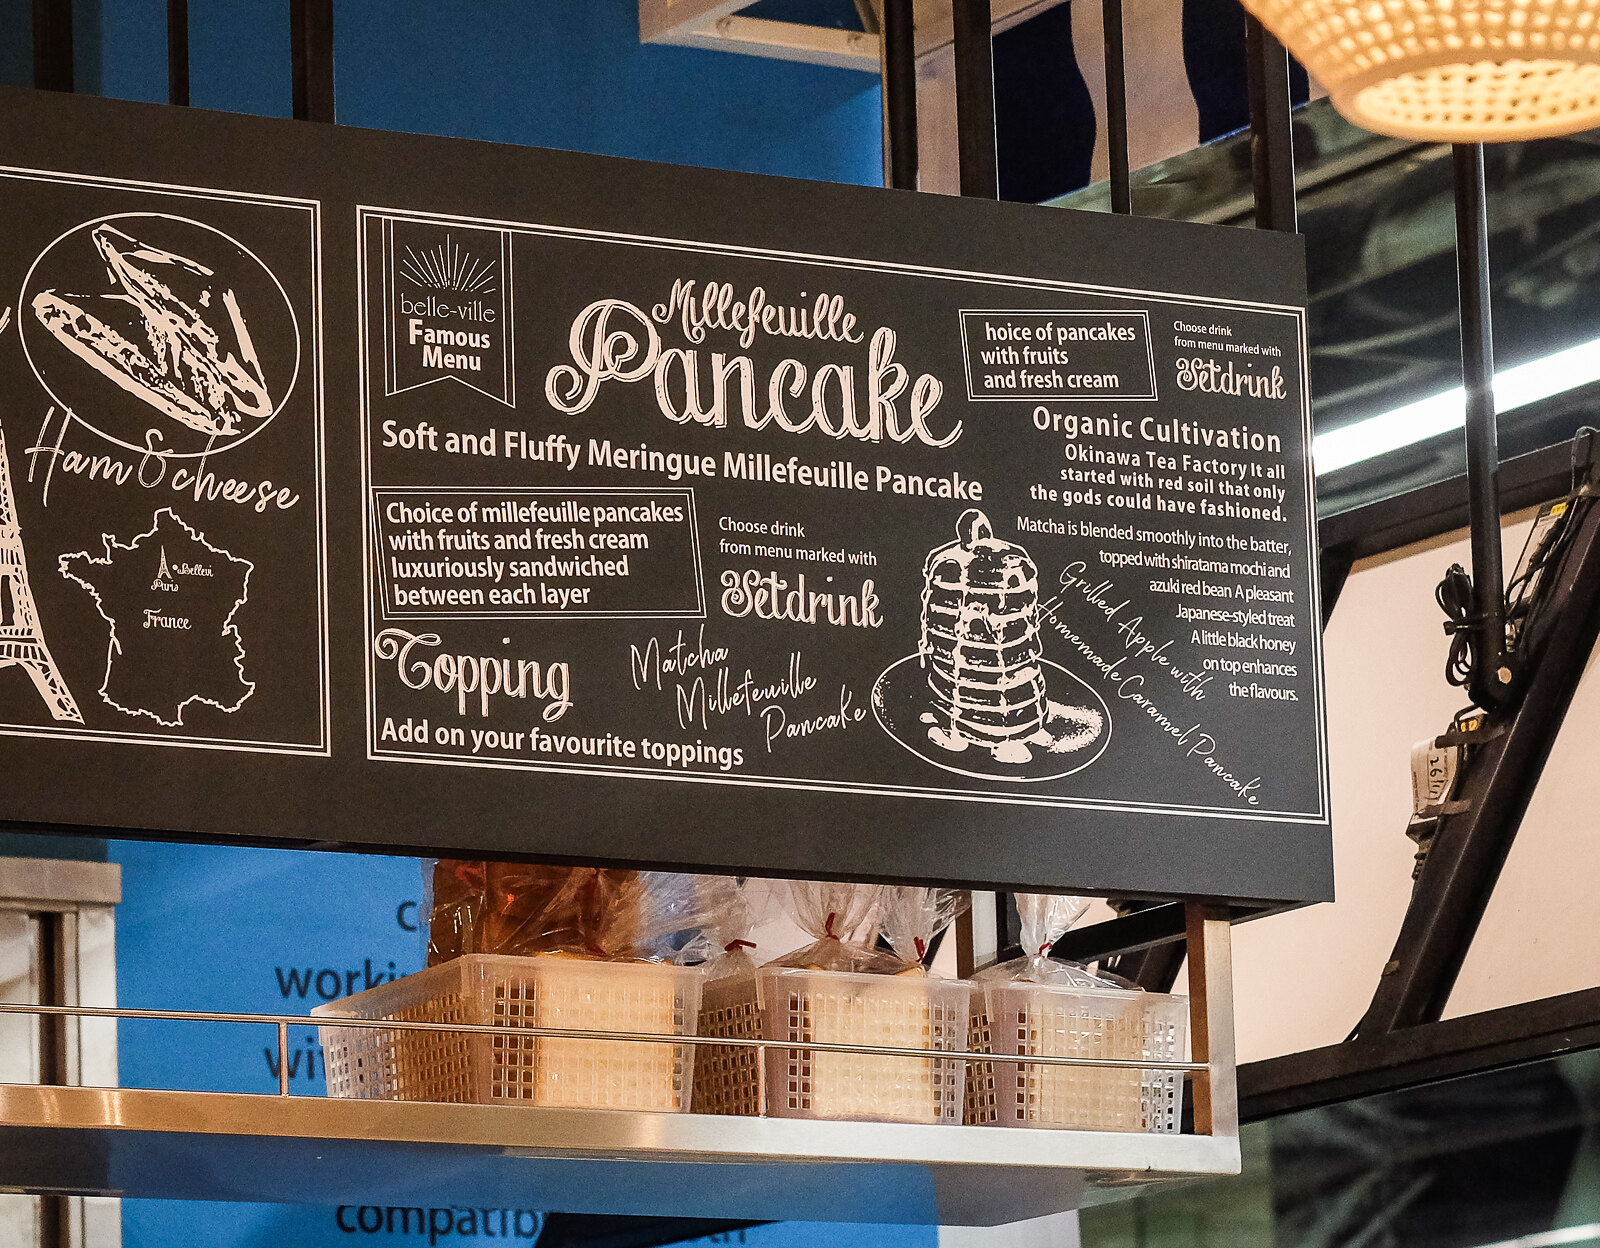 Ham & cheese
Bellevi
Paris
France
belle-ville
Famous
Menu
Millefeuille
Pancake
Soft and Fluffy Meringue Millefeuille Pancake
Choice of millefeuille pancakes
with fruits and fresh cream
luxuriously sandwiched
between each layer
Choose drink
from menu marked with
Setdrink
Topping
Add on your favourite toppings
Matcha
Millefeuille
Pancake
hoice of pancakes
with fruits
and fresh cream
Choose drink
from menu marked with
Setdrink
Organic Cultivation
Okinawa Tea Factory It all
started with red soil that only
the gods could have fashioned.
Matcha is blended smoothly into the batter,
topped with shiratama mochi and
azuki red bean A pleasant
Japanese-styled treat
A little black honey
on top enhances
the flavours.
Grilled Apple with
Homemade Caramel Pancake